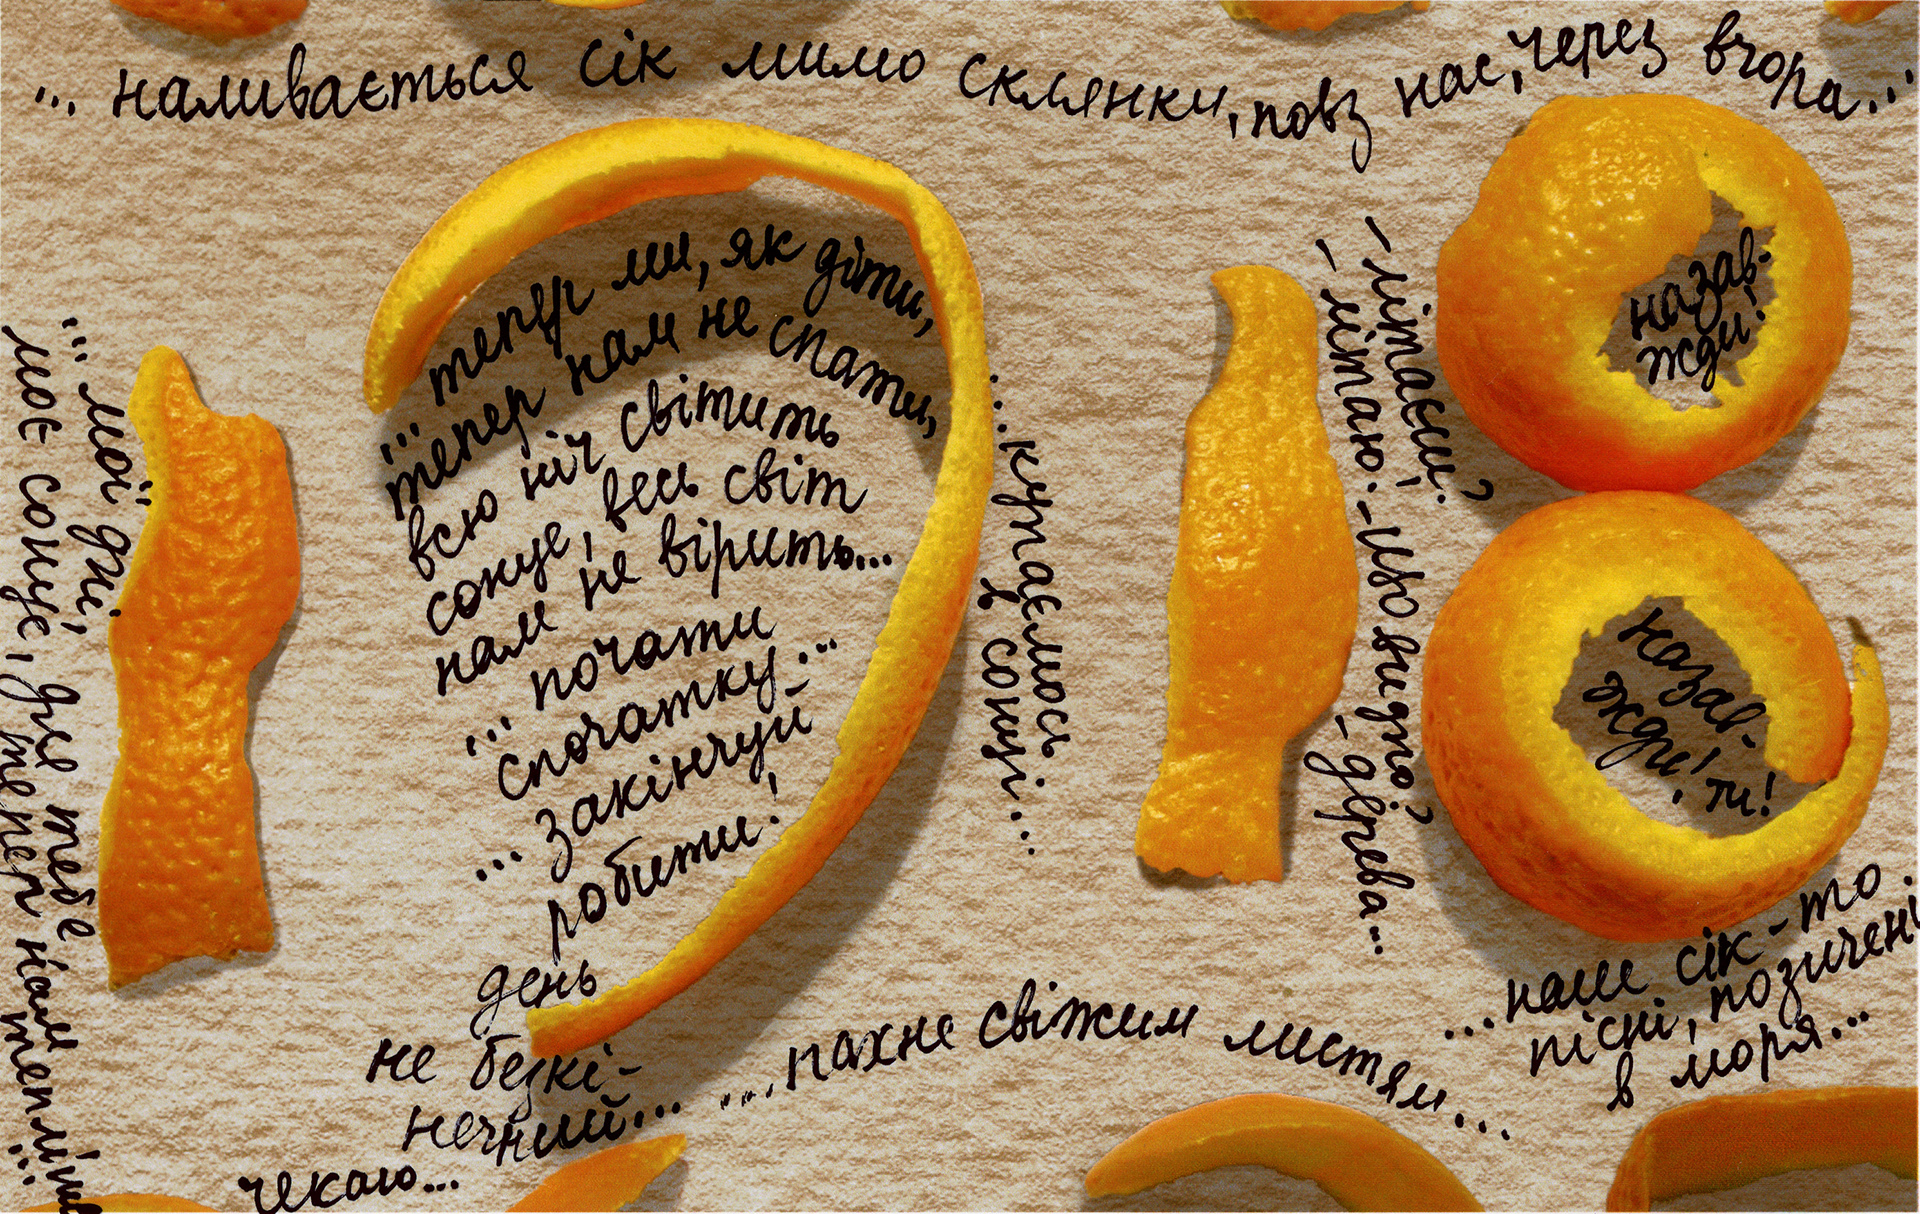 ... наливається сік мимо склянки, повз нас, через вчора...
... тепер ми, як діти,
... тепер нам не спати,
всю ніч світить
сонце, весь світ
нам не вірить...
... почати
спочатку...
... закінчуй
робити!
день
не безкі-
нечний...
чекаю...
... мої дні,
моє сонце, для тебе
тепер нам тепліше
...
... кутаємось
в сонці...
- літаєш?
- літаю. - що видно?
- дерева...
назав-
жди!
назав-
жди, ти!
... наш сік - то
пісні, позичені
в моря...
... пахне свіжим листям...